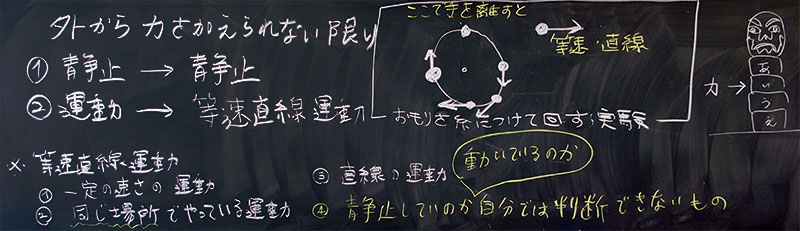 外から力を加えられない限り
① 静止 → 静止
② 運動 → 等速直線運動
ここで手を離すと
等速・直線
おもりを糸につけて回す実験
力 →
あ
い
う
え
※ 等速直線運動
① 一定の速さの運動
② 同じ場所でやっている運動
③ 直線の運動
動いているのか
④ 静止しているのか自分では判断できないもの